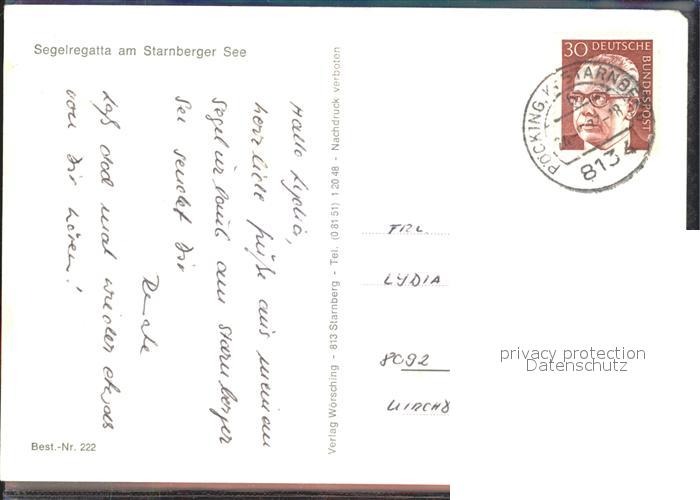 Segelregatta am Starnberger See
Hallo Lydia,
herrliche Grüße aus meinem
Segelurlaub am Starnberger
See sendet Dir
Renate
Laß doch mal wieder etwas
von Dir hören!
Best.-Nr. 222
Verlag Wörsching - 813 Starnberg - Tel. (0 81 51) 1 20 48 - Nachdruck verboten
30 DEUTSCHE BUNDESPOST
PÖCKING, K. STARNBE
8134
FRL.
LYDIA
8092
KIRCH
privacy protection
Datenschutz